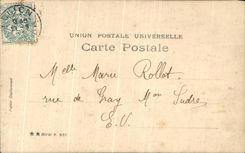 DIJON
UNION POSTALE UNIVERSELLE
Carte Postale
Melle Marie Rollot
rue de Gray Mon Sudre
E.V.